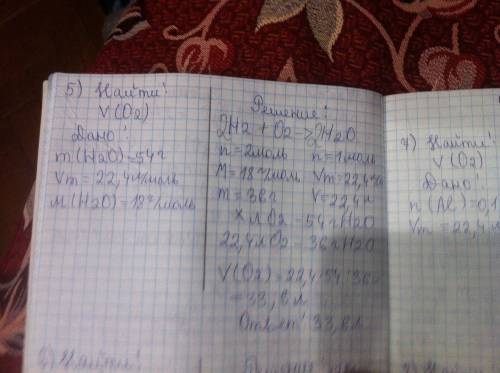 5) Найти:
V(O2)
Дано:
m(H2O)=54г
Vm=22,4л/моль
M(H2O)=18г/моль
Решение:
2H2 + O2 → 2H2O
n=2моль n=1моль
M=18г/моль Vm=22,4л/
m=36г V=22,4л
X л O2 – 54г H2O
22,4л O2 = 36г H2O
V(O2)=22,4·54:36=
=33,6л
Ответ: 33,6л
7) Найти:
V(O2)
Дано:
n(Al)=0,1
Vm=22,4л
Найти: